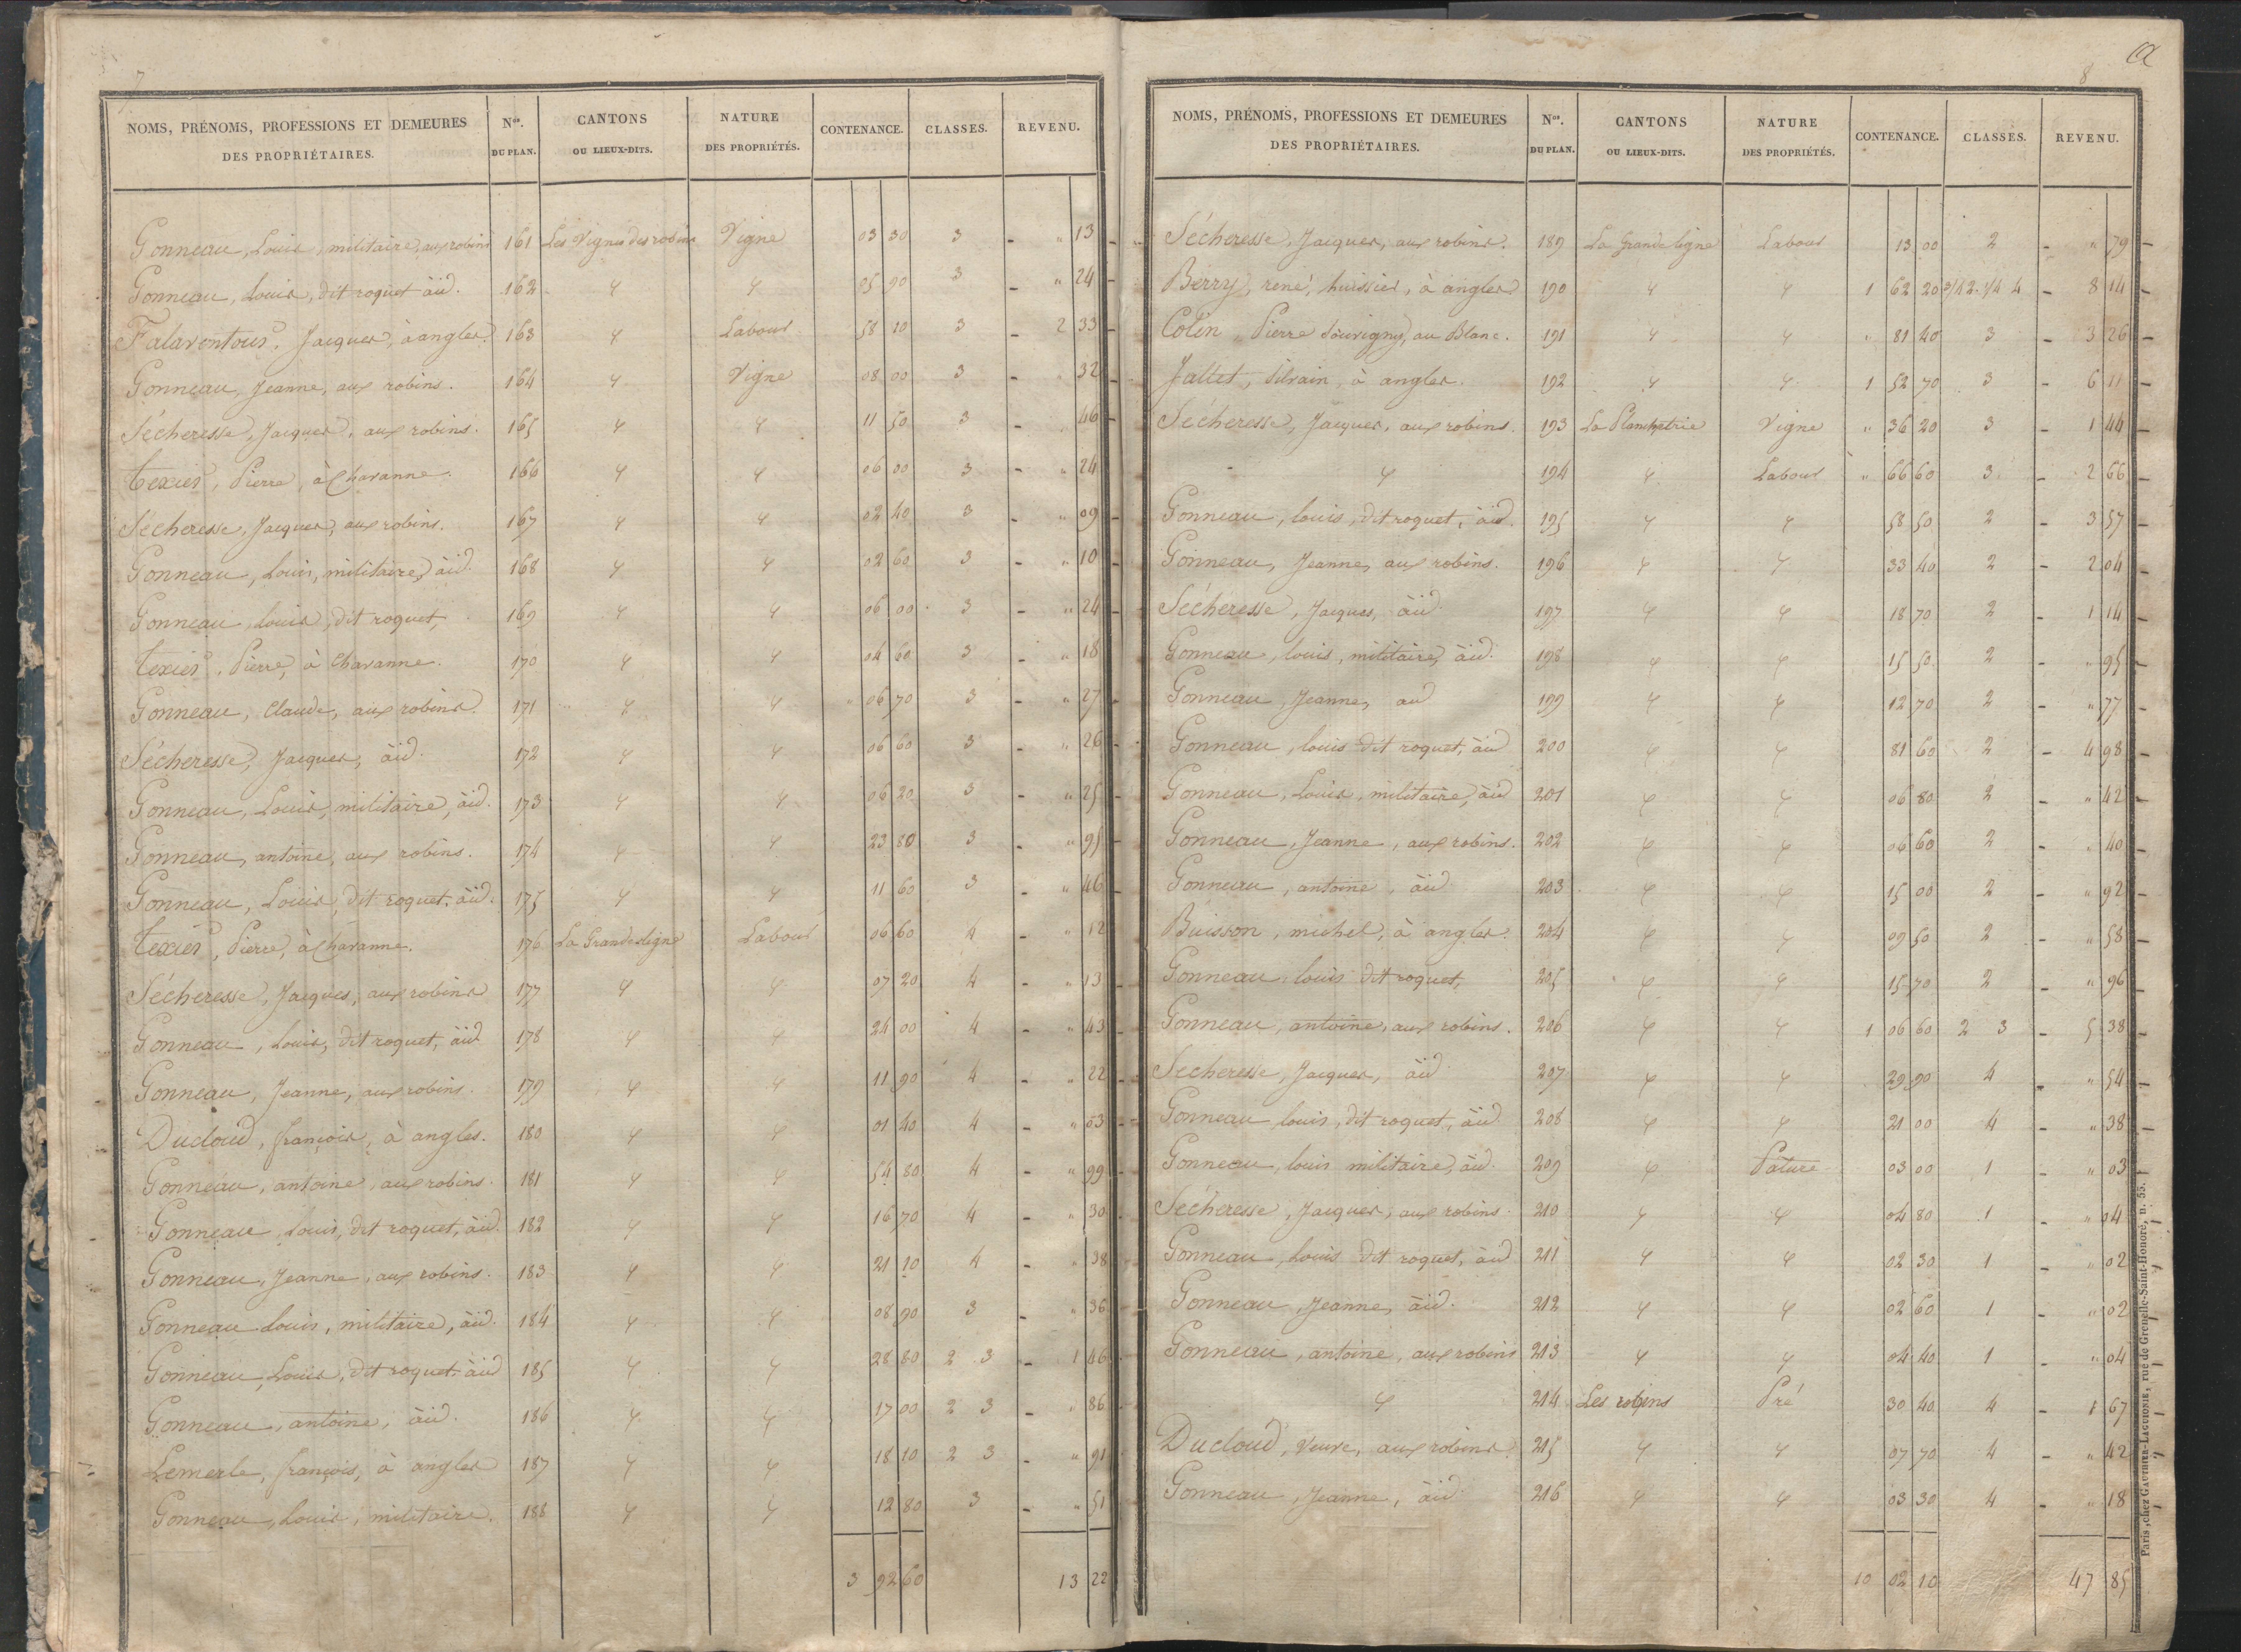 7
NOMS, PRÉNOMS, PROFESSIONS ET DEMEURES DES PROPRIÉTAIRES. Nos. DU PLAN. CANTONS OU LIEUX-DITS. NATURE DES PROPRIÉTÉS. CONTENANCE. CLASSES. REVENU.
Gonneau, Louis, militaire, aux robins 161 Les Vignes des robins Vigne 03 30 3 - " 13
Gonneau, Louis, dit roquet aüd. 162 " " 05 90 3 - " 24
Falaventous, Jacques, à angles. 163 " Labour 58 10 3 - 2 33
Gonneau, Jeanne, aux robins. 164 " Vigne 08 00 3 - " 32
Sécheresse, Jacques, aux robins. 165 " " 11 50 3 - " 46
texier, Pierre, à Charanne. 166 " " 06 00 3 - " 24
Sécheresse, Jacques, aux robins. 167 " " 02 40 3 - " 09
Gonneau, Louis, militaire, aüd. 168 " " 02 60 3 - " 10
Gonneau, Louis, dit roquet, 169 " " 06 00 3 - " 24
texier, Pierre, à Charanne. 170 " " 04 60 3 - " 18
Gonneau, Claude, aux robins. 171 " " 06 70 3 - " 27
Sécheresse, Jacques, aüd. 172 " " 06 60 3 - " 26
Gonneau, Louis, militaire, aüd. 173 " " 06 20 3 - " 25
Gonneau, antoine, aux robins. 174 " " 23 80 3 - " 95
Gonneau, Louis, dit roquet, aüd. 175 " " 11 60 3 - " 46
texier, Pierre, à Charanne. 176 La Grande ligne Labour 06 60 4 - " 12
Sécheresse, Jacques, aux robins 177 " " 07 20 4 - " 13
Gonneau, Louis, dit roquet, aüd 178 " " 24 00 4 - " 43
Gonneau, Jeanne, aux robins. 179 " " 11 90 4 - " 22
Ducloud, françois, à angles. 180 " " 01 40 4 - " 03
Gonneau, antoine, aux robins. 181 " " 54 80 4 - " 99
Gonneau, Louis, dit roquet, aüd. 182 " " 16 70 4 - " 30
Gonneau, Jeanne, aux robins. 183 " " 21 10 4 - " 38
Gonneau Louis, militaire, aüd. 184 " " 08 90 3 - " 36
Gonneau, Louis, dit roquet, aüd 185 " " 28 80 2 3 - 1 46
Gonneau, antoine, aüd. 186 " " 17 00 2 3 - " 86
Lemerle, françois, à angles 187 " " 18 10 2 3 - " 91
Gonneau, Louis, militaire. 188 " " 12 80 3 - " 51
3 92 60 13 22
8
NOMS, PRÉNOMS, PROFESSIONS ET DEMEURES DES PROPRIÉTAIRES. Nos. DU PLAN. CANTONS OU LIEUX-DITS. NATURE DES PROPRIÉTÉS. CONTENANCE. CLASSES. REVENU.
Sécheresse, Jacques, aux robins. 189 La Grande ligne Labour 13 00 2 - " 79
Berry, rené, huissier, à angles 190 " " 1 62 20 3/4 2. 1/4 4 - 8 14
Colin, Pierre Souvigny, au Blanc. 191 " " " 81 40 3 - 3 26
Jallet, silvain, à angles. 192 " " 1 52 70 3 - 6 11
Sécheresse, Jacques, aux robins. 193 La Planchetrie Vigne " 36 20 3 - 1 44
" 194 " Labour " 66 60 3 - 2 66
Gonneau, louis, dit roquet, aüd. 195 " " 58 50 2 - 3 57
Gonneau, Jeanne, aux robins. 196 " " 33 40 2 - 2 04
Sécheresse, Jacques, aüd 197 " " 18 70 2 - 1 14
Gonneau, louis, militaire, aüd. 198 " " 15 50 2 - " 95
Gonneau, Jeanne, aud 199 " " 12 70 2 - " 77
Gonneau, louis dit roquet, aüd 200 " " 81 60 2 - 4 98
Gonneau, Louis, militaire, aüd 201 " " 06 80 2 - " 42
Gonneau, Jeanne, aux robins. 202 " " 06 60 2 - " 40
Gonneau, antoine, aüd 203 " " 15 00 2 - " 92
Buisson, michel, à angles. 204 " " 09 50 2 - " 58
Gonneau louis dit roquet, 205 " " 15 70 2 - " 96
Gonneau, antoine, aux robins. 206 " " 1 06 60 2 3 - 5 38
Sécheresse, Jacques, aüd 207 " " 29 90 4 - " 54
Gonneau louis, dit roquet, aüd 208 " " 21 00 4 - " 38
Gonneau, louis militaire, aüd. 209 " Pature 03 00 1 - " 03
Sécheresse, Jacques, aux robins. 210 " " 04 80 1 - " 04
Gonneau, Louis dit roquet, aüd 211 " " 02 30 1 - " 02
Gonneau, Jeanne, aüd. 212 " " 02 60 1 - " 02
Gonneau, antoine, aux robins 213 " " 04 40 1 - " 04
" 214 Les robins Pré 30 40 4 - 1 67
Ducloud, Veuve, aux robins 215 " " 07 70 4 - " 42
Gonneau, Jeanne, aüd 216 " " 03 30 4 - " 18
10 02 10 47 85
Paris, chez GAUTHIER-LAGUIONIE, rue de Grenelle-Saint-Honoré, n. 55.